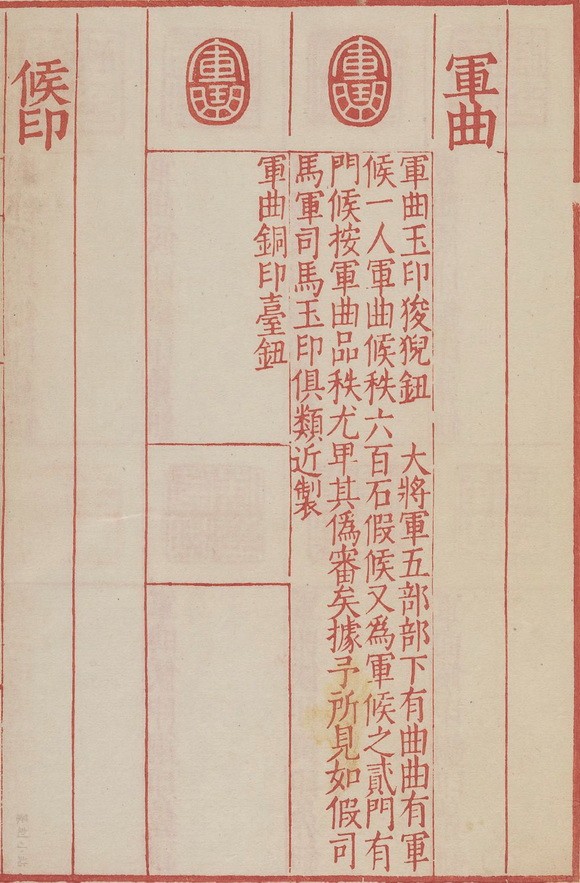 軍曲
軍曲
軍曲玉印狻猊鈕　大將軍五部部下有曲曲有軍
候一人軍曲候秩六百石假候又為軍候之貳門有
門候按軍曲品秩尤甲其偽審矣據予所見如假司
馬軍司馬玉印俱類近製
軍曲
軍曲銅印臺鈕
候印